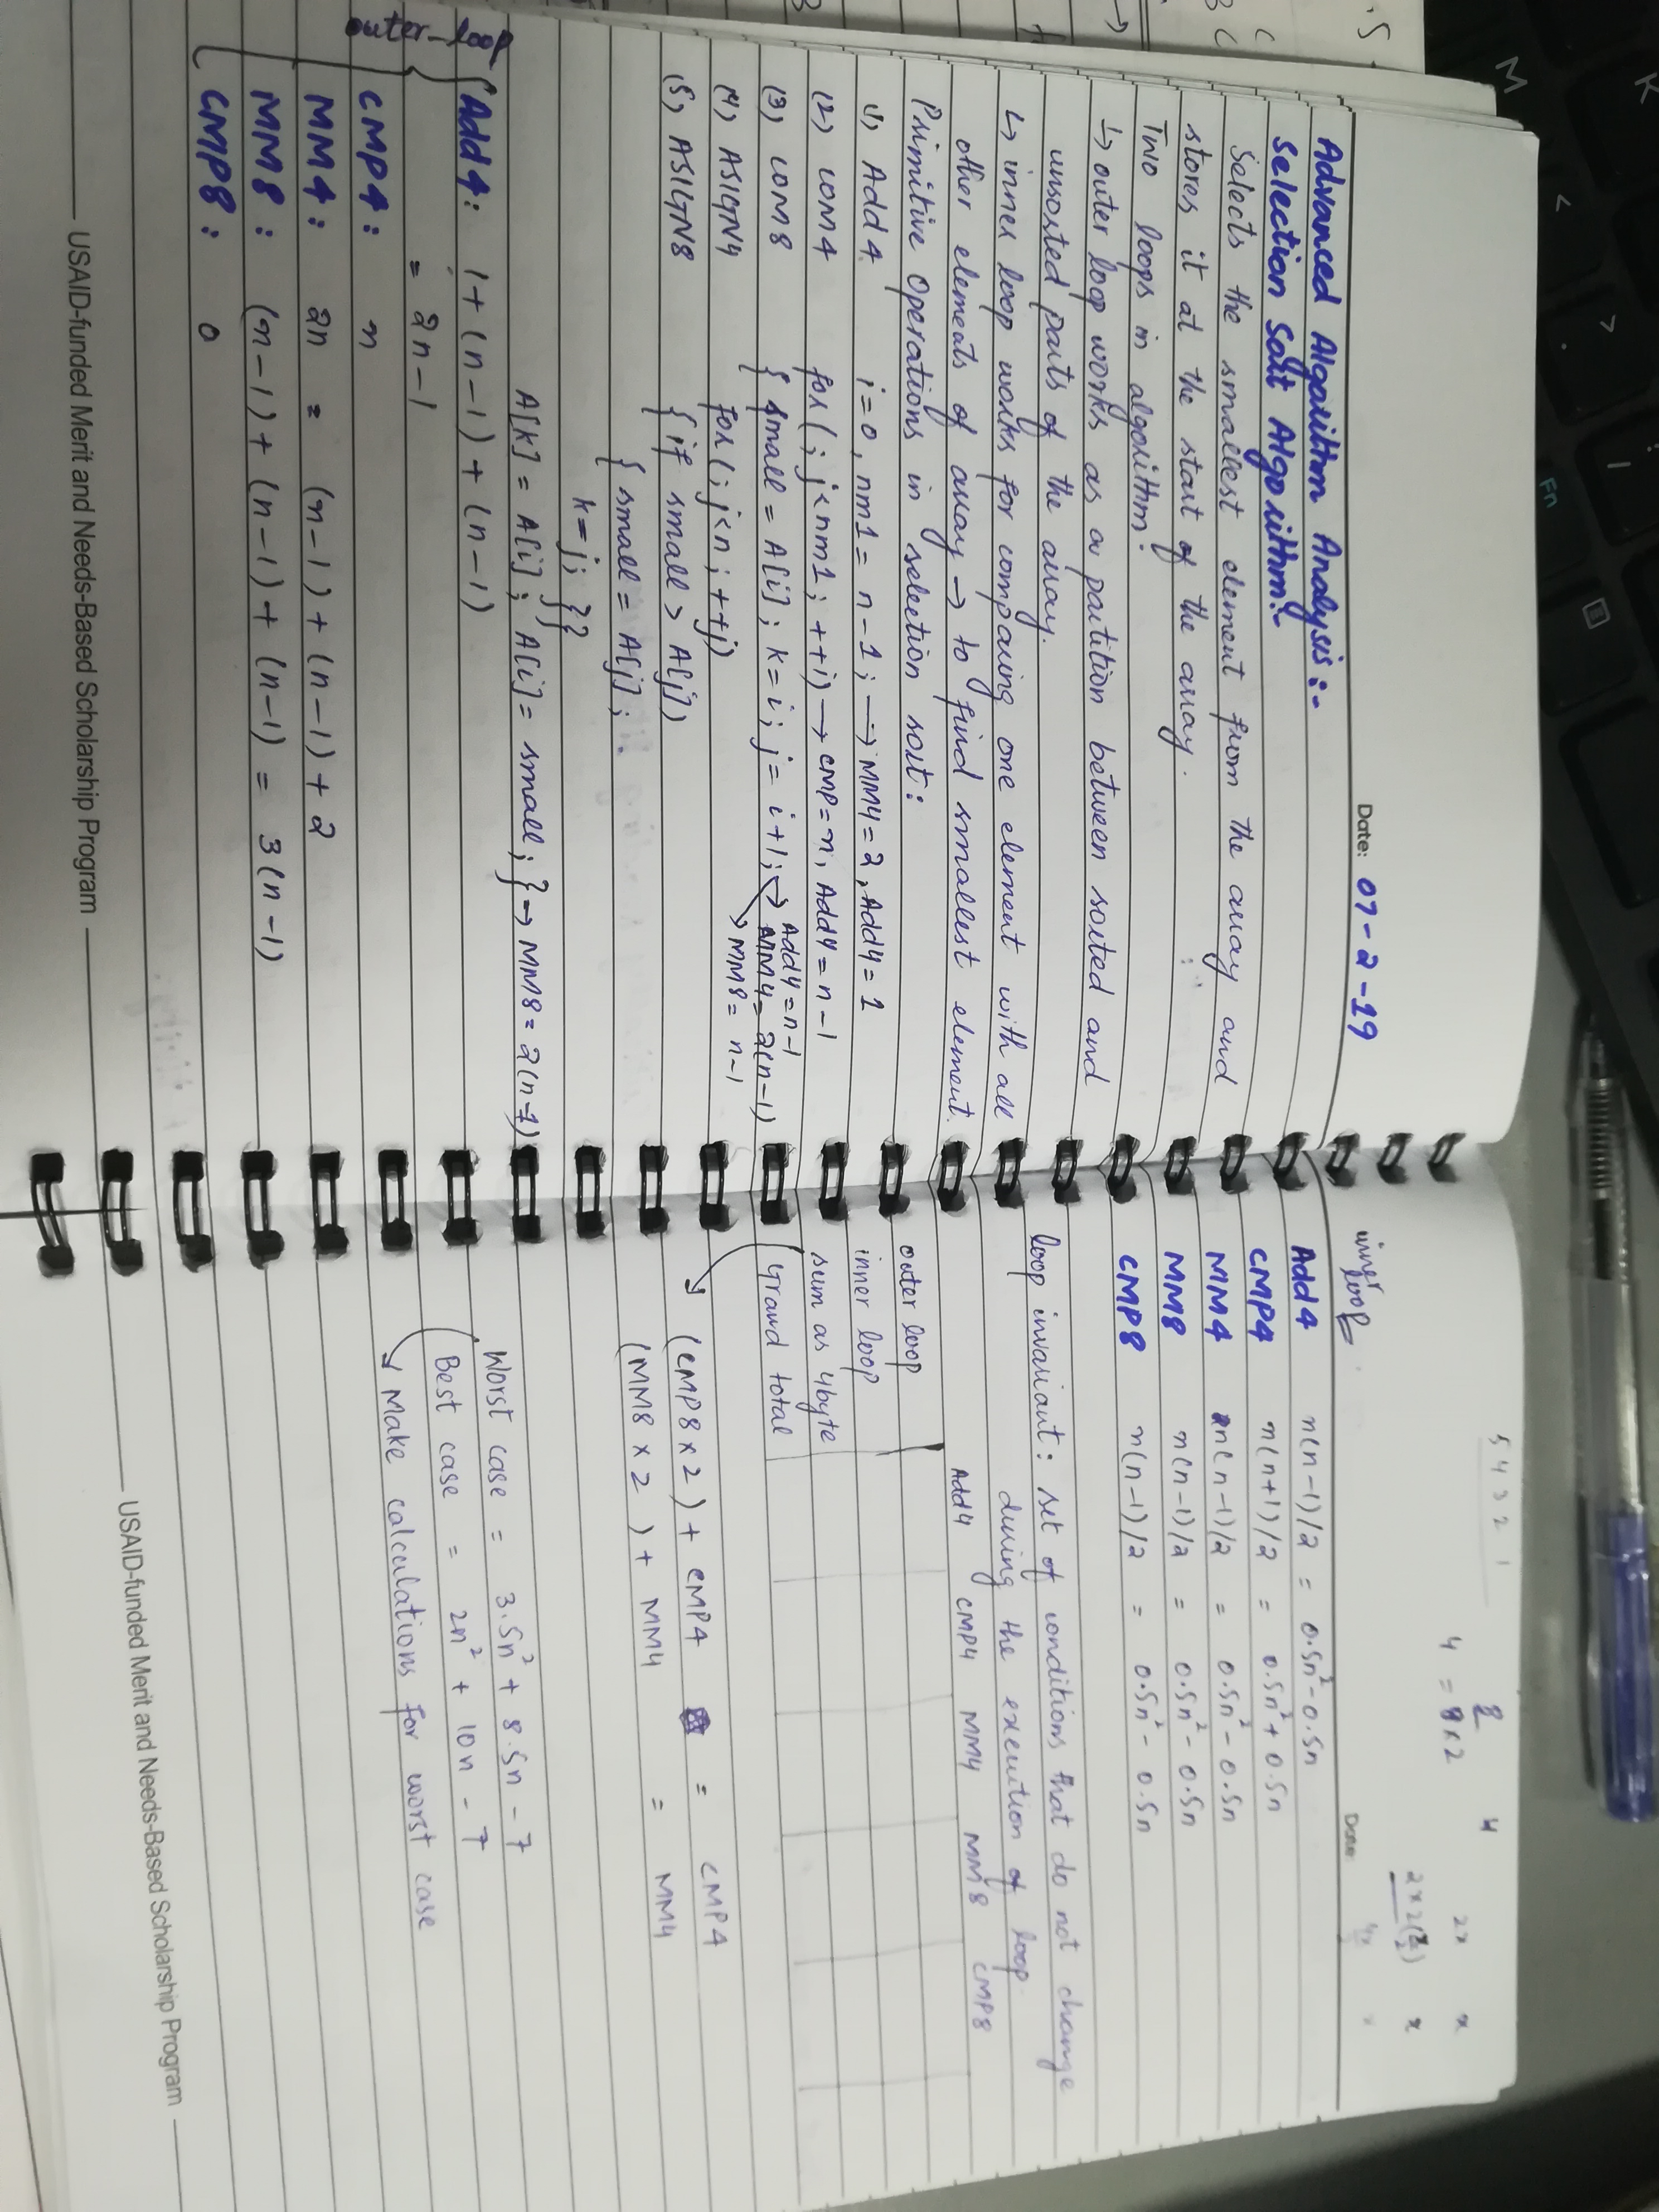 K
M
<
>
Fn
Date: 07-2-19
Advanced Algorithm Analysis:-
Selection Sort Algorithm:-
Selects the smallest element from the array and
stores it at the start of the array.
Two loops in algorithm:
↳ outer loop works as a partition between sorted and
unsorted parts of the array.
↳ inner loop works for comparing one element with all
other elements of array → to find smallest element.
Primitive Operations in selection sort:
(1) Add 4 i=0, nm1 = n-1; → MM4=2, Add4=1
(2) COM4 for(; j<nm1; ++i) → CMP=n, Add4=n-1
(3) COM8 { small = A[i]; k=i; j= i+1; → Add4=n-1
MM4=2(n-1)
→ MM8= n-1
(4) ASIGN4 for(; j<n; ++j)
(5) ASIGN8 {if small > A[j])
{ small = A[j];
k=j; }}
A[k] = A[i]; A[i]= small; } → MM8=2(n-1)
outer-loop
Add4: 1+(n-1)+(n-1)
= 2n-1
CMP4: n
MM4: 2n = (n-1)+(n-1)+2
MM8: (n-1)+(n-1)+(n-1) = 3(n-1)
CMP8: 0
USAID-funded Merit and Needs-Based Scholarship Program
5 4 3 2 1
4
4 = 8×2
2x x
2×2(x/2) x
inner loop
Date
Add4 n(n-1)/2 = 0.5n²-0.5n
CMP4 n(n+1)/2 = 0.5n²+0.5n
MM4 n(n-1)/2 = 0.5n²-0.5n
MM8 n(n-1)/2 = 0.5n²-0.5n
CMP8 n(n-1)/2 = 0.5n²-0.5n
loop invariant: set of conditions that do not change
during the execution of loop.
Add4 CMP4 MM4 MM8 CMP8
outer loop
inner loop
sum as 4byte
Grand total
(CMP8×2)+CMP4 = CMP4
(MM8×2)+MM4 = MM4
Worst case = 3.5n²+8.5n-7
Best case = 2n²+10n-7
↳ Make calculations for worst case
USAID-funded Merit and Needs-Based Scholarship Program